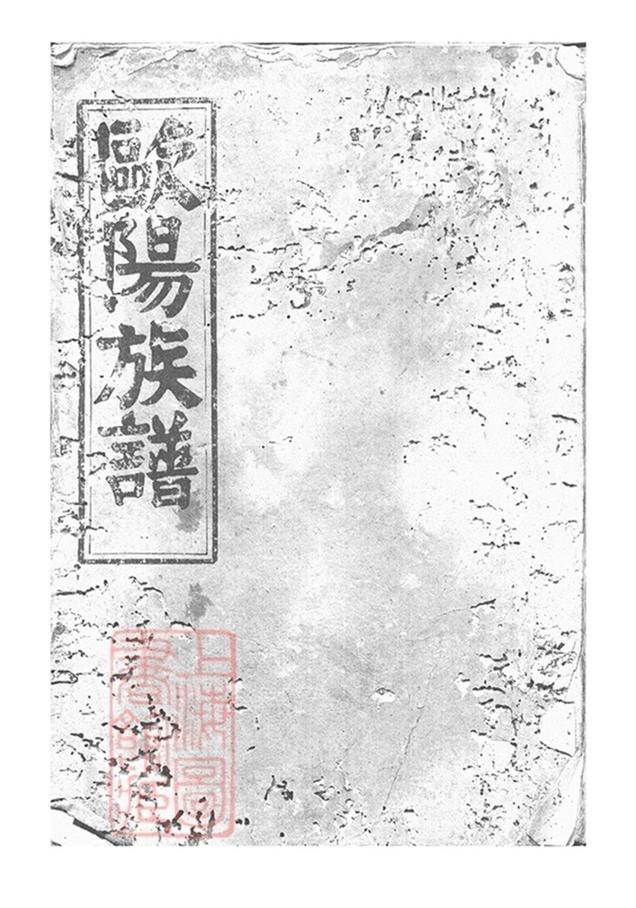 歐陽族譜
上海圖
書館藏